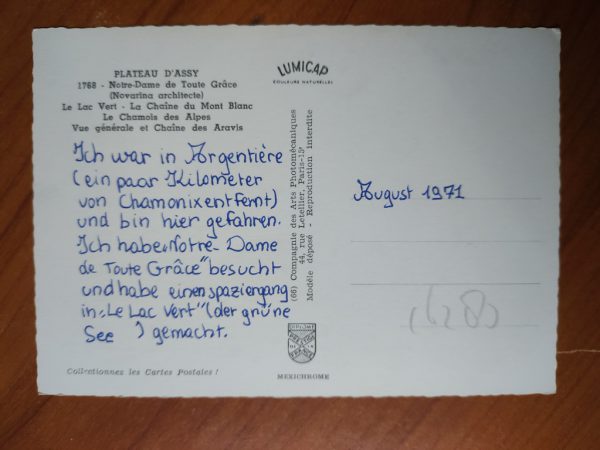 PLATEAU D'ASSY
1768 - Notre-Dame de Toute Grâce
(Novarina architecte)
Le Lac Vert - La Chaîne du Mont Blanc
Le Chamois des Alpes
Vue générale et Chaîne des Aravis
Ich war in Argentière
(ein paar Kilometer
von Chamonix entfernt)
und bin hier gefahren.
Ich habe „Notre-Dame
de Toute Grâce" besucht
und habe einen spaziergang
in „Le Lac Vert" (der grüne
See ) gemacht.
Collectionnez les Cartes Postales !
LUMICAP
COULEURS NATURELLES
(66) Compagnie des Arts Photomécaniques
44, rue Letellier, Paris-15e
Modèle déposé - Reproduction interdite
MEXICHROME
August 1971